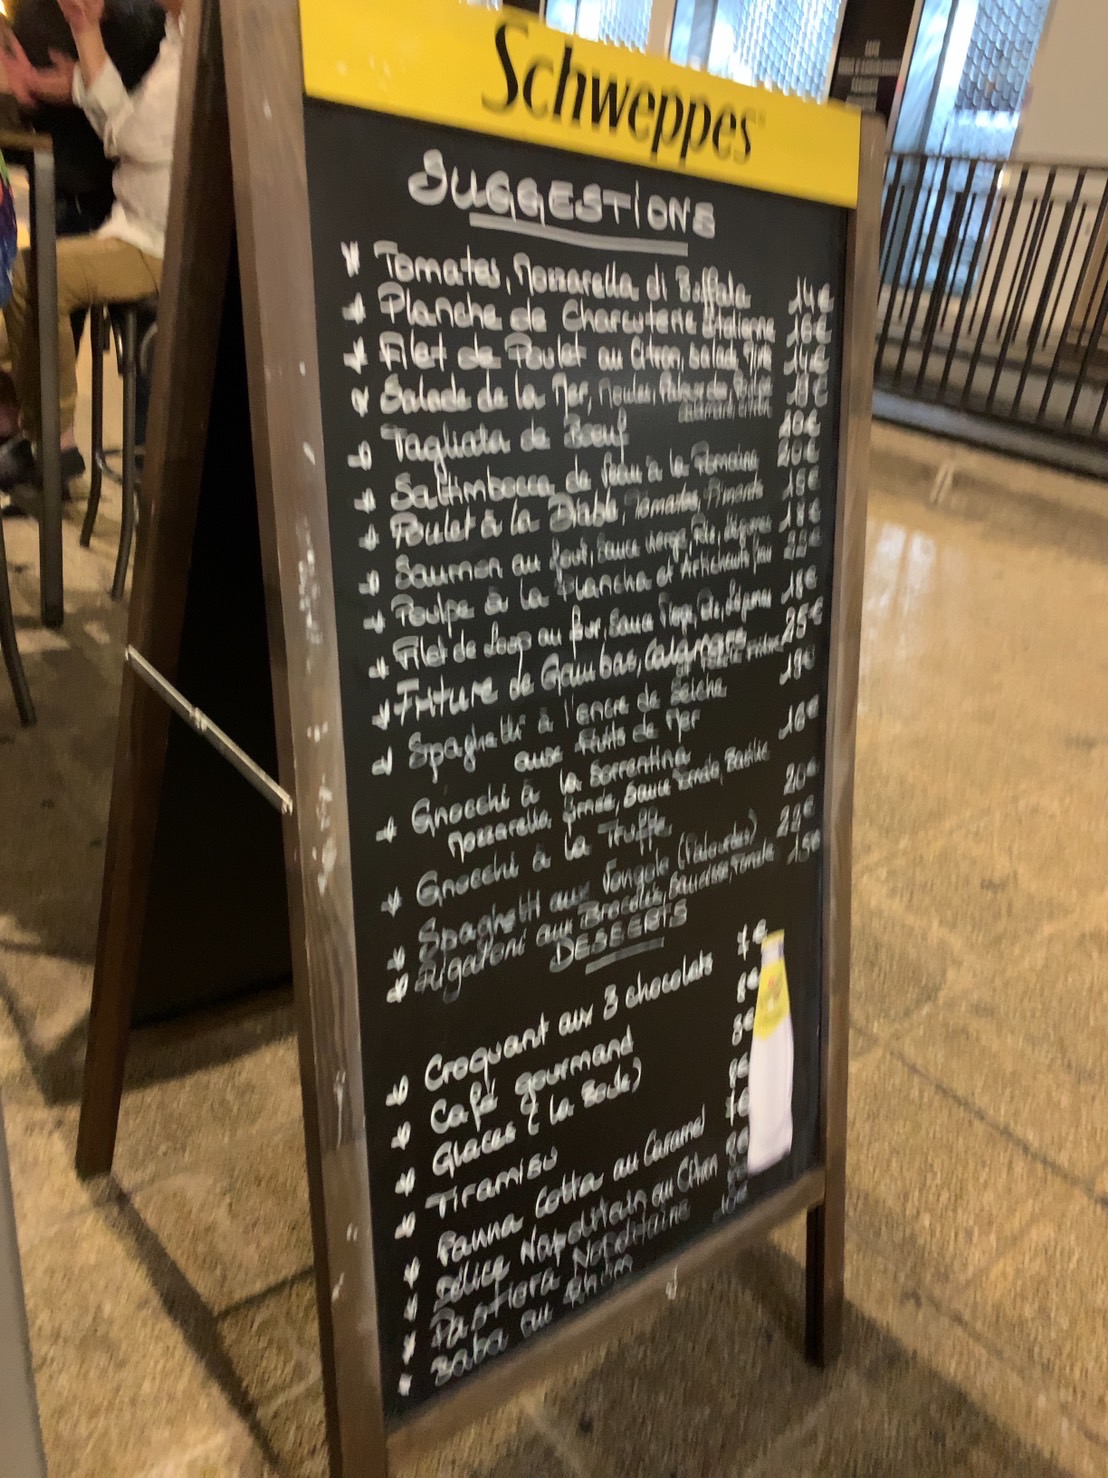 Schweppes
SUGGESTIONS
Tomates, Mozzarella di Buffala 14€
Planche de Charcuterie Italienne 16€
Filet de Poulet au Citron, Salade, 14€
Salade de la Mer, Moules, Palourdes,
Tagliata de Boeuf 20€
Saltimbocca de Veau à la Romaine 20€
Poulet à la Diable, Tomates, Piments 15€
Saumon au four, Sauce Vierge, Riz, légumes 18€
Poulpe à la Plancha et Artichauts 22€
Filet de Loup au four, Sauce Vierge, Riz, légumes 18€
Friture de Gambas, Calamars 25€
Spaghetti à l'encre de Seiche 19€
aux Fruits de Mer
Gnocchi à la Sorrentina 16€
Mozzarella, Sauce Tomate, Basilic
Gnocchi à la Truffe 20€
Spaghetti aux Vongole (Palourdes) 22€
Rigatoni aux Brocolis, Saucisse, Tomate 15€
DESSERTS
Croquant aux 3 chocolats 7€
Café gourmand 8€
Glaces (la Boule)
TIRAMISU
Panna Cotta au Caramel 7€
Délice Napolitain au Citron
Pastiera Napolitaine
Baba au Rhum